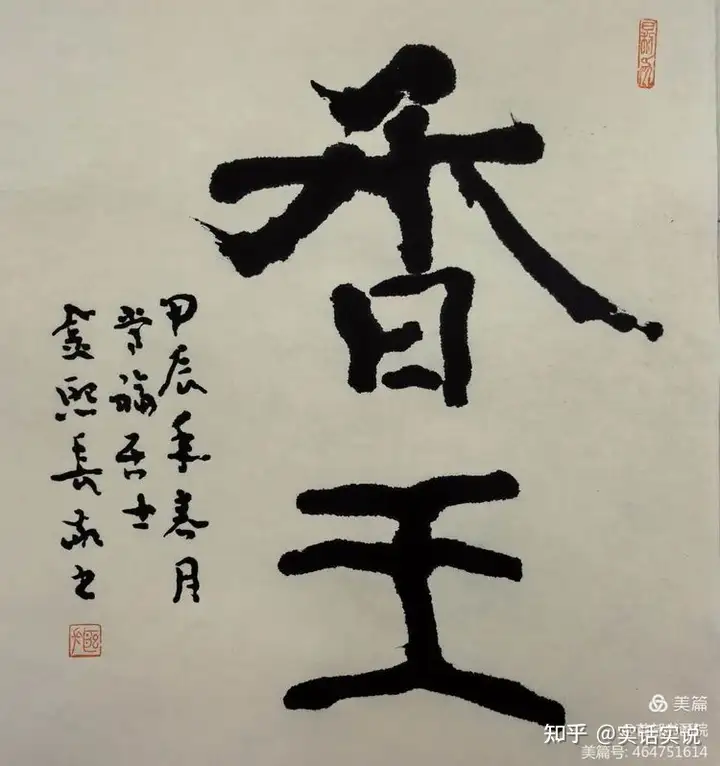 香王
甲辰年春月
福居士
熙長书
美篇
知乎 @实话实说
美篇号: 464751614